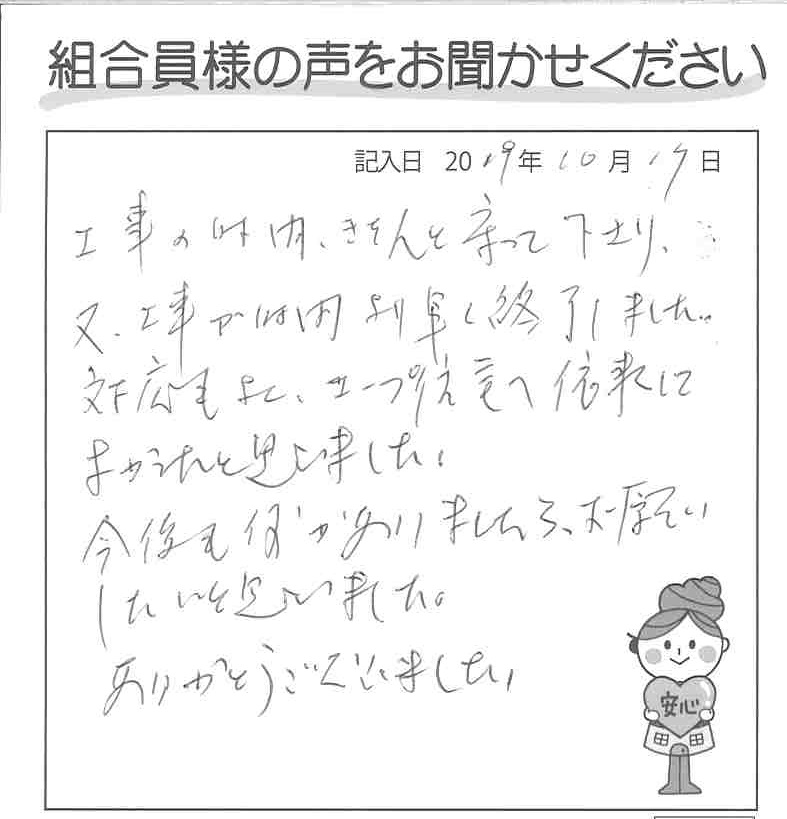 組合員様の声をお聞かせください
記入日 2019年10月17日
工事の時間、きちんと守って下さり、
又、工事が時間より早く終了しました。
対応もよく、コープ住宅へ依頼して
よかったと思いました。
今後も何かありましたら、お願い
したいと思いました。
ありがとうございました。
安心